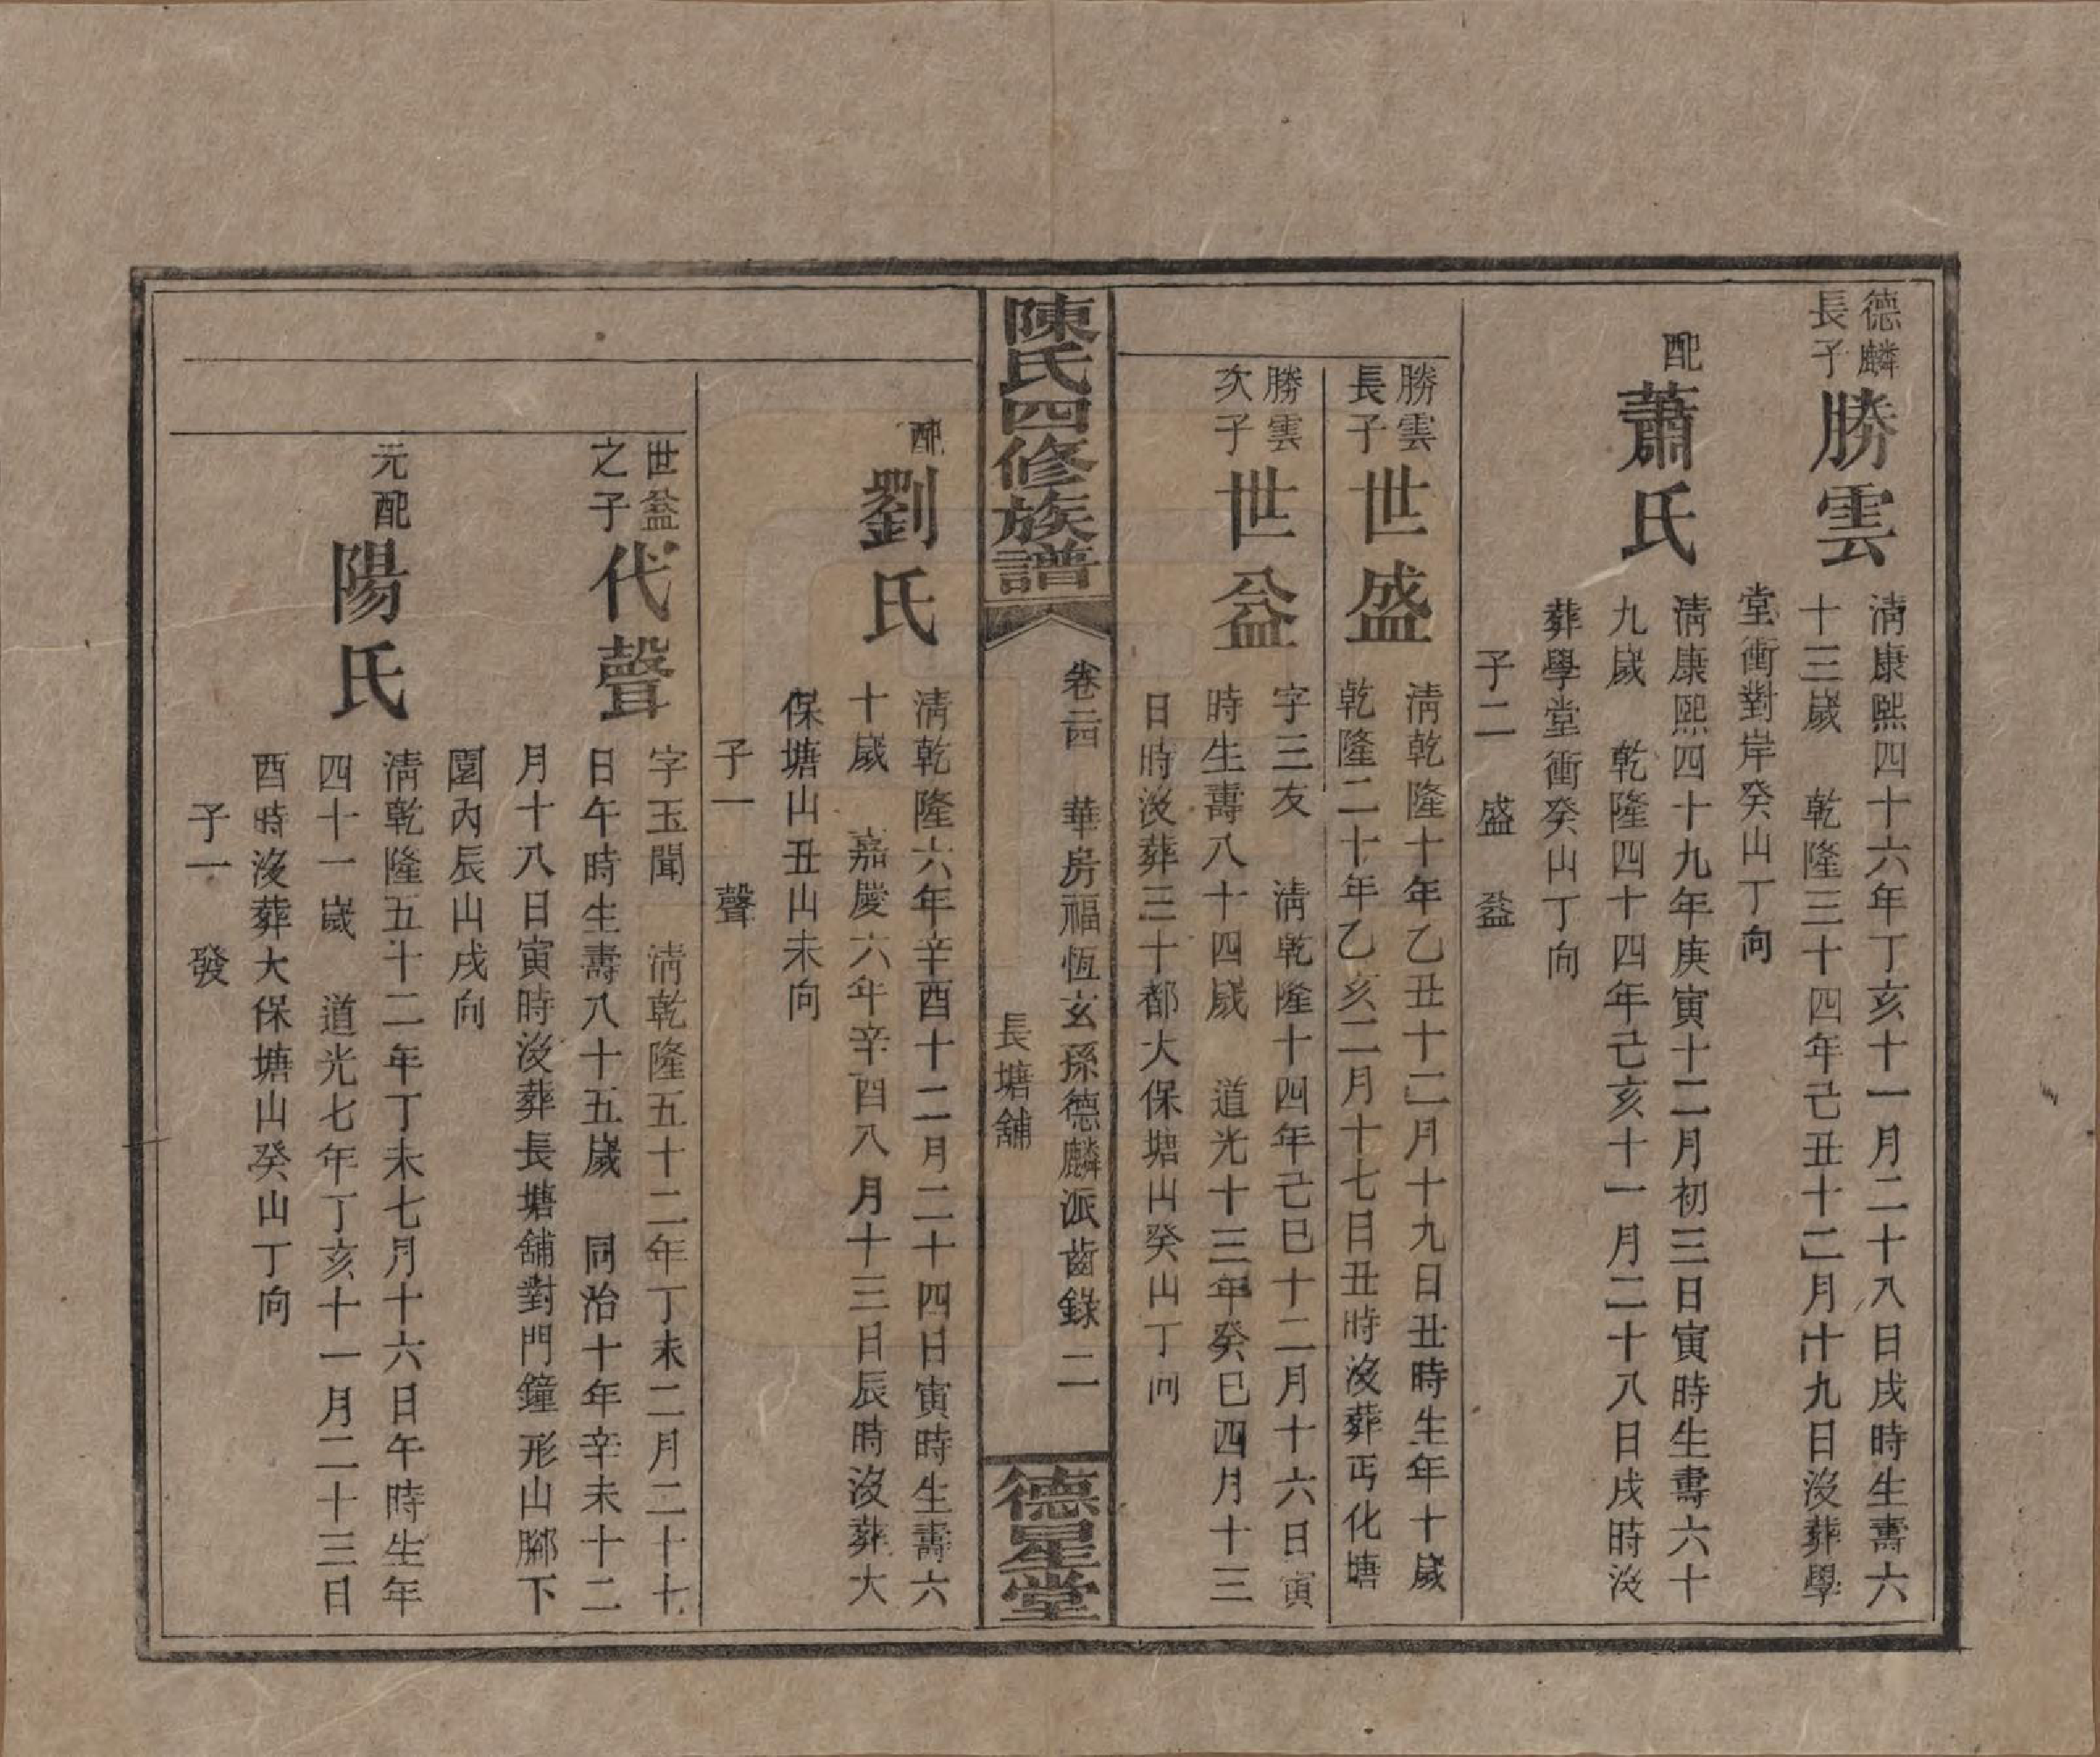 德麟
長子
勝雲
清康熙四十六年丁亥十一月二十八日戌時生壽六
十三歲　乾隆三十四年己丑十二月十九日沒葬學
堂衝對岸癸山丁向
配
蕭氏
清康熙四十九年庚寅十二月初三日寅時生壽六十
九歲　乾隆四十四年己亥十一月二十八日戌時沒
葬學堂衝癸山丁向
子二　盛　益
勝雲
長子
世盛
清乾隆十年乙丑十二月十九日丑時生年十歲
乾隆二十年乙亥二月十七日丑時沒葬丐化塘
勝雲
次子
世益
字三友　清乾隆十四年己巳十二月十六日寅
時生壽八十四歲　道光十三年癸巳四月十三
日時沒葬三十都大保塘山癸山丁向
陳氏四修族譜
卷二四　華房福恆玄孫德麟派齒錄　二
長塘舖
德星堂
配
劉氏
清乾隆六年辛酉十二月二十四日寅時生壽六
十歲　嘉慶六年辛酉八月十三日辰時沒葬大
保塘山丑山未向
子一　聲
世益
之子
代聲
字玉聞　清乾隆五十二年丁未二月二十七
日午時生壽八十五歲　同治十年辛未十二
月十八日寅時沒葬長塘舖對門鐘形山腳下
園內辰山戌向
元配
陽氏
清乾隆五十二年丁未七月十六日午時生年
四十一歲　道光七年丁亥十一月二十三日
酉時沒葬大保塘山癸山丁向
子一　發